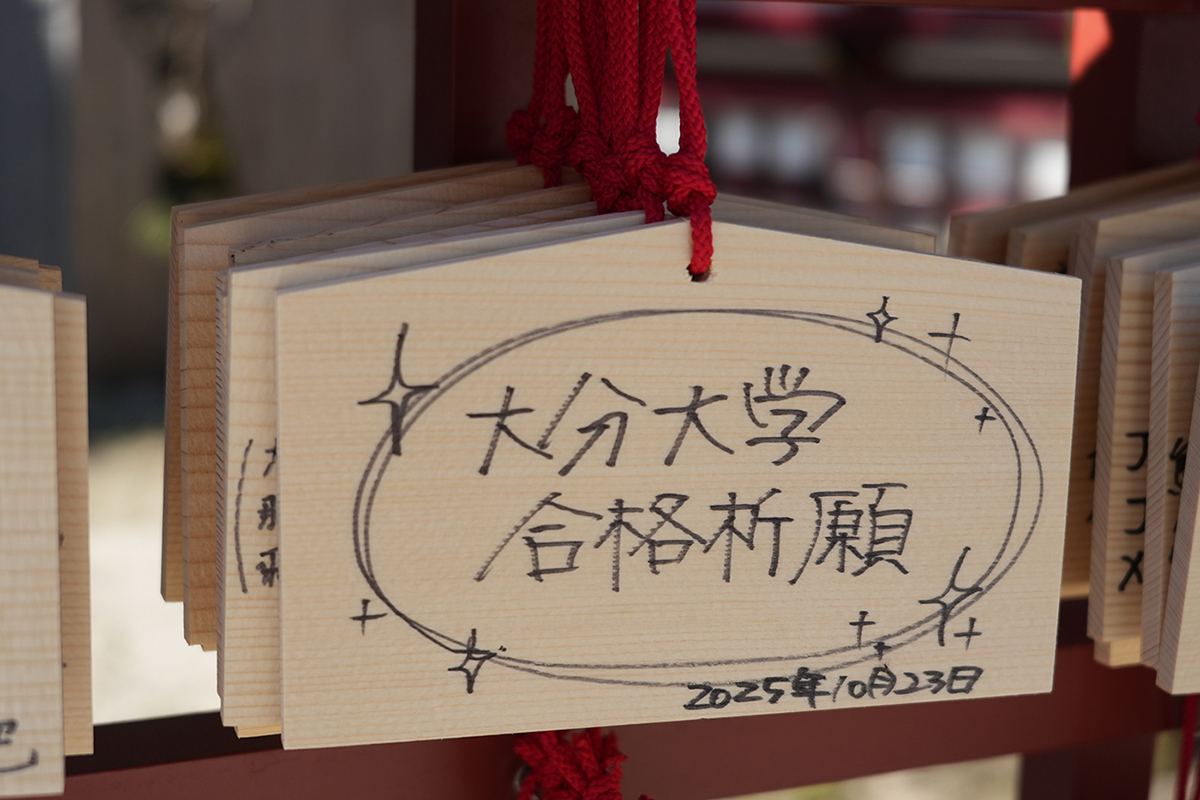 大分大学
合格祈願
2025年10月23日